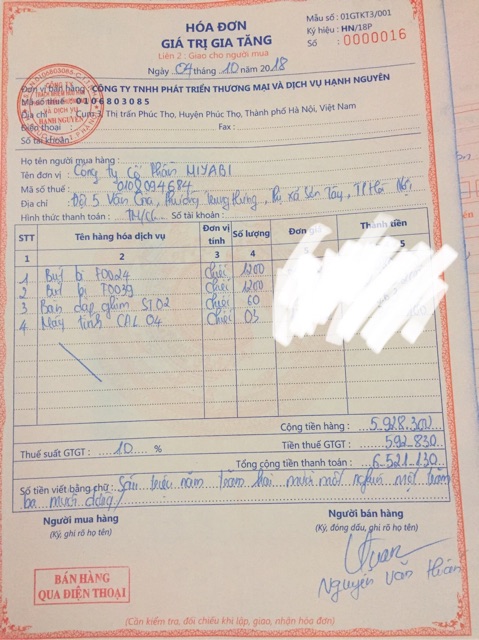 HÓA ĐƠN
GIÁ TRỊ GIA TĂNG
Liên 2: Giao cho người mua
Ngày 04 tháng 10 năm 2018
Mẫu số : 01GTKT3/001
Ký hiệu : HN/18P
Số : 0000016
Đơn vị bán hàng : CÔNG TY TNHH PHÁT TRIỂN THƯƠNG MẠI VÀ DỊCH VỤ HẠNH NGUYÊN
Mã số thuế : 0106803085
Địa chỉ : Cụm 3, Thị trấn Phúc Thọ, Huyện Phúc Thọ, Thành phố Hà Nội, Việt Nam
Điện thoại Fax :
Số tài khoản:
Họ tên người mua hàng :
Tên đơn vị : Công ty Cổ Phần MIYABI
Mã số thuế : 0108094684
Địa chỉ : Đội 5 Vân Gia, Phường Trung Hưng, Thị xã Sơn Tây, TP Hà Nội
Hình thức thanh toán : TM/CK Số tài khoản:
STT Tên hàng hóa dịch vụ Đơn vị tính Số lượng Đơn giá Thành tiền
1 2 3 4 5
1 Bút bi F0024 Chiếc 1200
2 Bút bi T0039 Chiếc 1200
3 Bàn dập ghim ST02 Chiếc 60
4 Máy tính CAL 04 Chiếc 03
Cộng tiền hàng : 5.928.300
Thuế suất GTGT : 10 % Tiền thuế GTGT : 592.830
Tổng cộng tiền thanh toán : 6.521.130
Số tiền viết bằng chữ : Sáu triệu năm trăm hai mươi mốt nghìn một trăm
ba mươi đồng/
Người mua hàng Người bán hàng
(Ký, ghi rõ họ tên) (Ký, đóng dấu, ghi rõ họ tên)
Nguyễn Văn
BÁN HÀNG
QUA ĐIỆN THOẠI
(Cần kiểm tra, đối chiếu khi lập, giao, nhận hóa đơn)